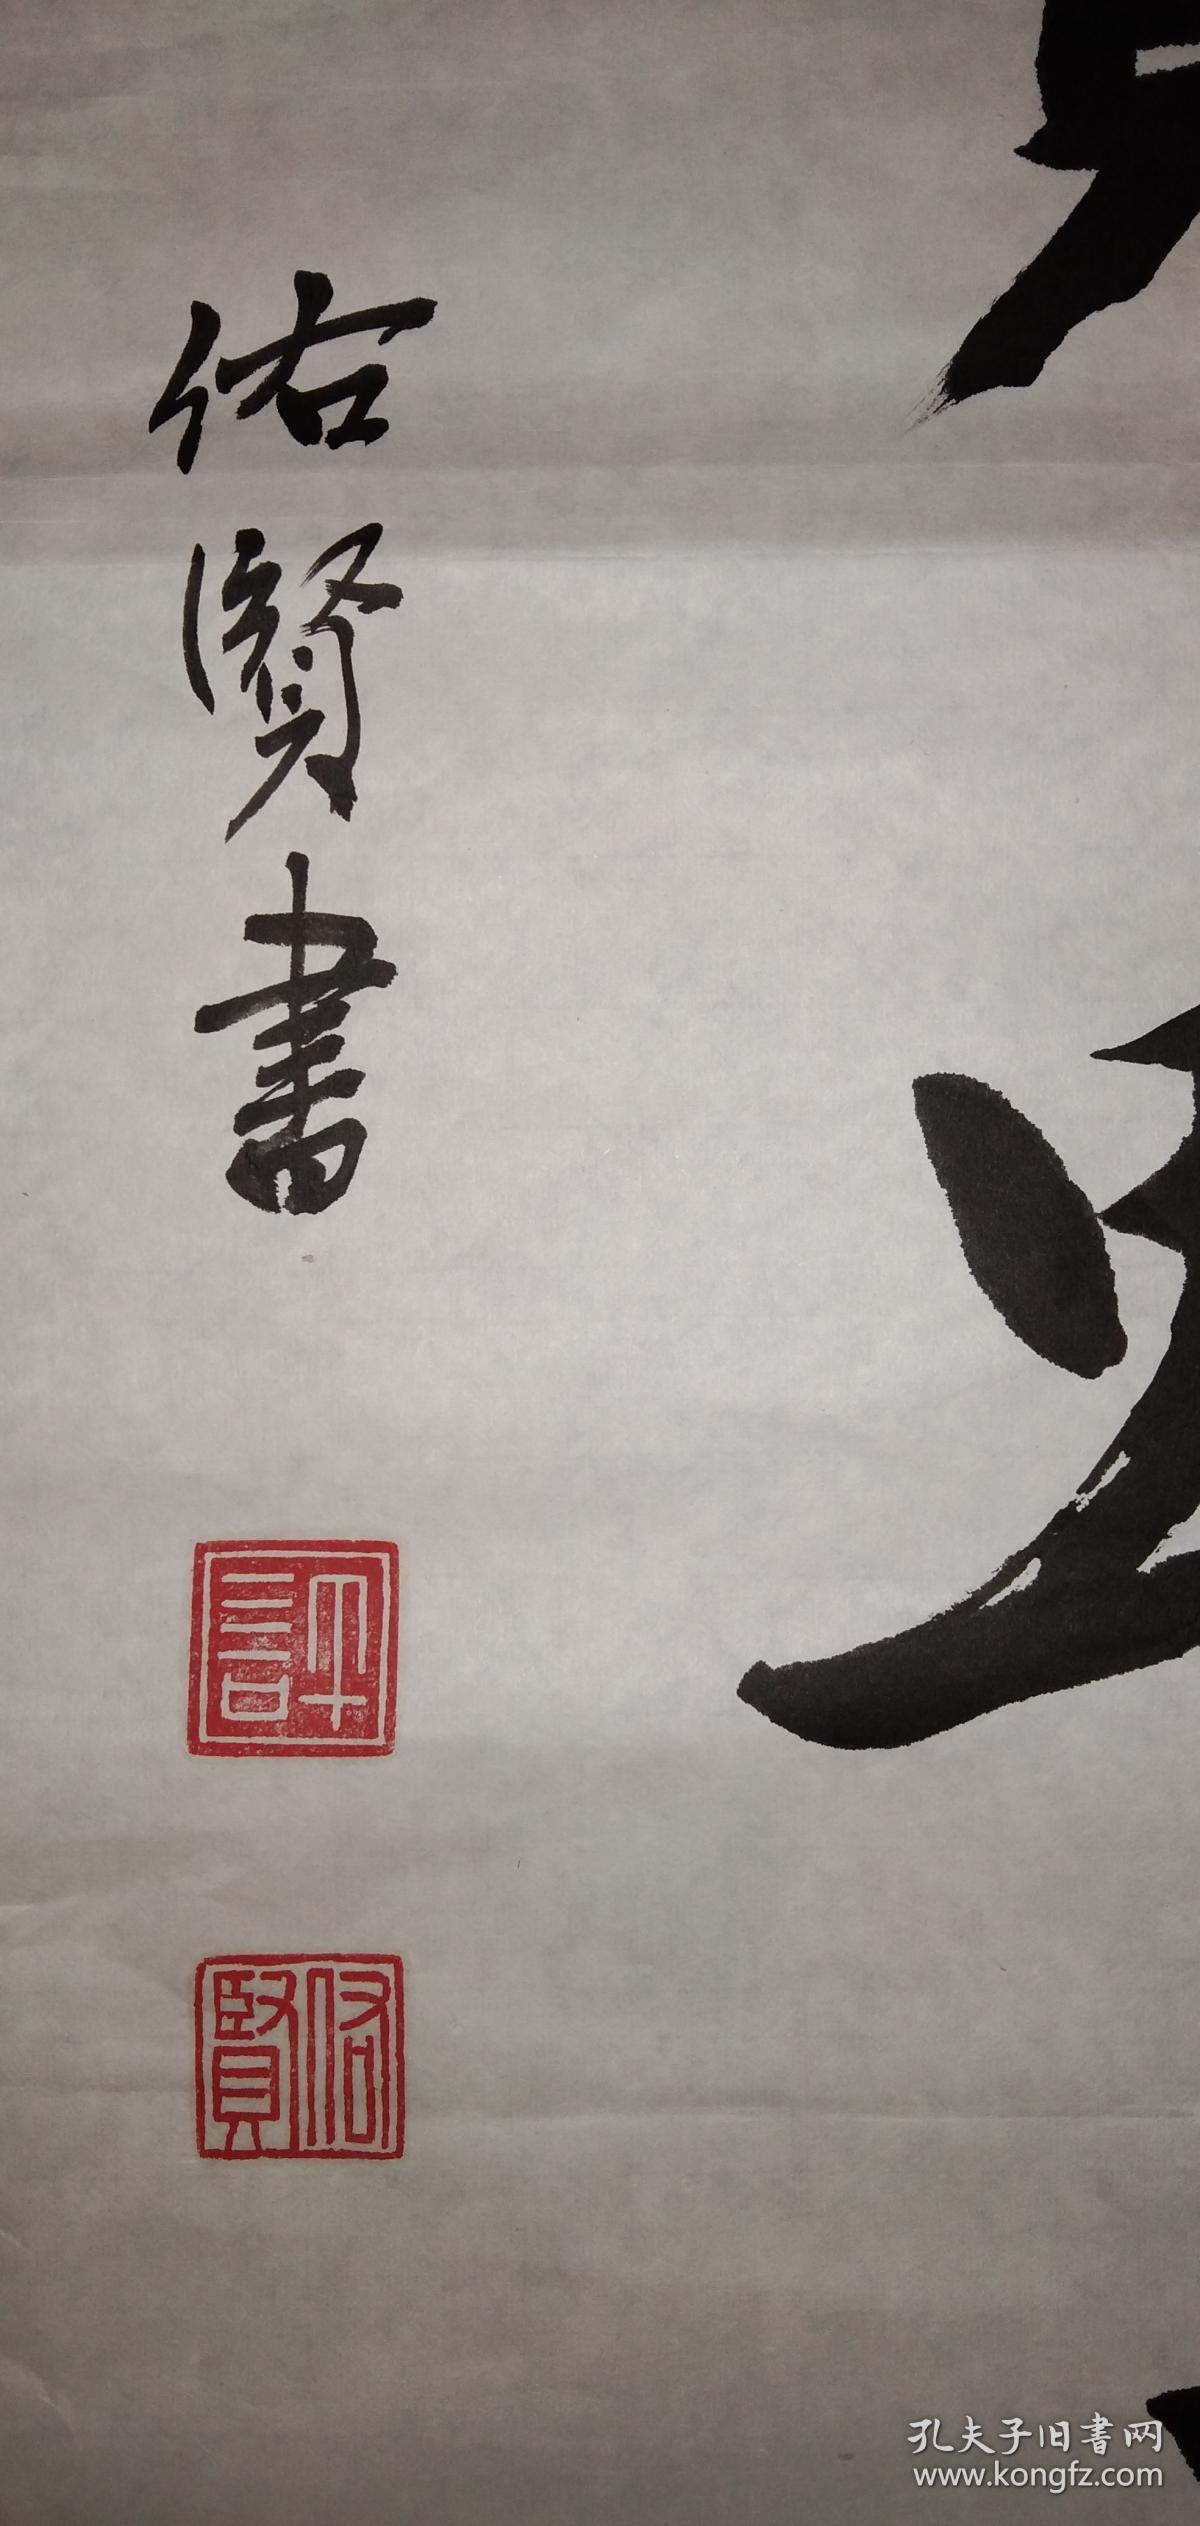 佑賢書
許
佑賢
孔夫子旧书网
www.kongfz.com